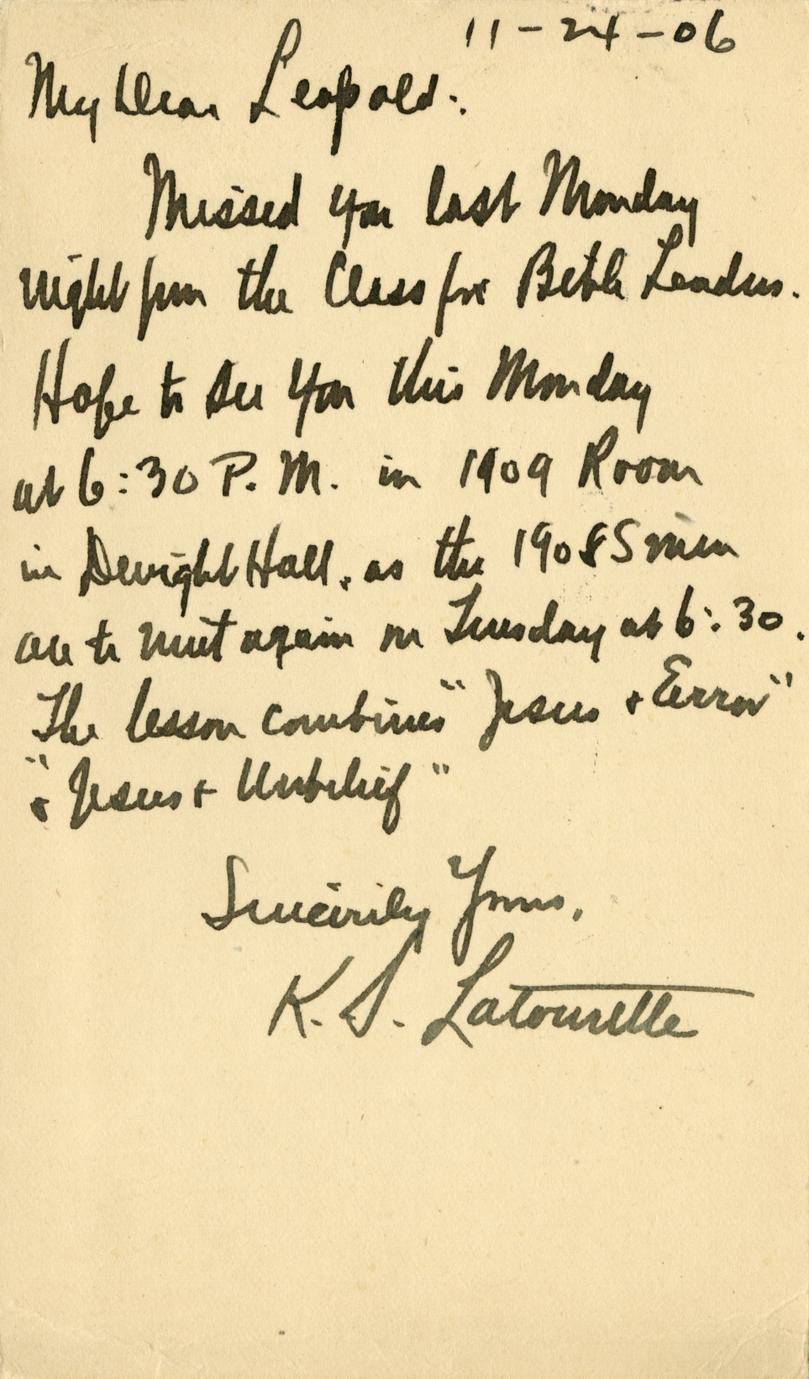 11-24-06
My Dear Leopold:
Missed you last Monday
night from the Class for Bible Leaders.
Hope to see you this Monday
at 6:30 P.M. in 1909 Room
in Dwight Hall, as the 1908 S men
are to meet again on Tuesday at 6:30.
The lesson combines "Jesus + Error"
+ "Jesus + Unbelief"
Sincerely Yours,
K. S. Latourette